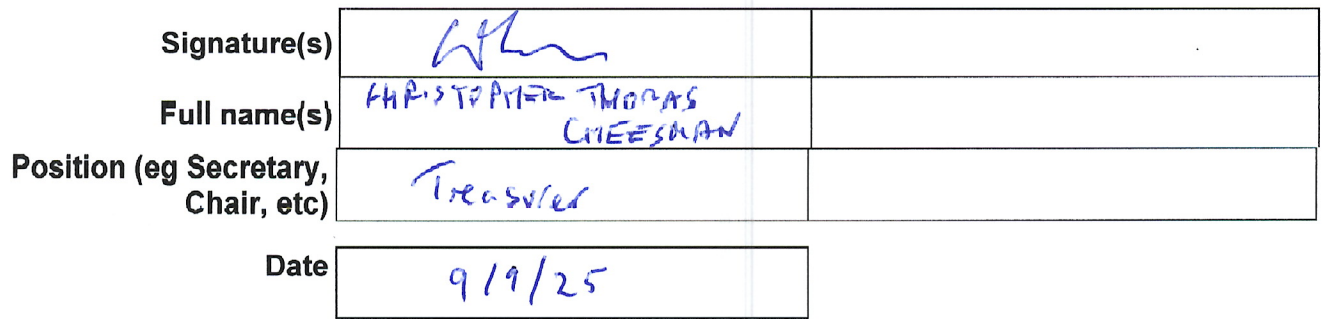 Signature(s)
Full name(s) CHRISTOPHER THOMAS
CHEESMAN
Position (eg Secretary,
Chair, etc) Treasurer
Date 9/9/25